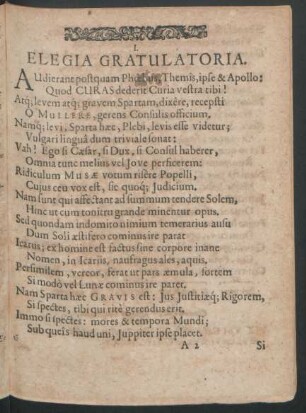 I.
ELEGIA GRATULATORIA.
AUdierant postquam Themis, ipse & Apollo:
Quod CURAS dederit Curia vestra tibi!
Atq; levem atq; gravem Spartam, dixêre, recepisti
O MULLERE, gerens Consulis officium.
Namq; levi, Sparta hæc, Plebi, levis esse videtur;
Vulgari linguâ dum trivialisonat:
Vah! Ego si Cæsar, si Dux, si Consul haberer,
Omnia tunc melius vel Jove perficerem:
Ridiculum MUSÆ votum risêre Popelli,
Cujus ceu vox est, sic quoq; Judicium.
Nam sunt qui affectant ad summum tendere Solem,
Hinc ut cum tonitru grande minentur opus.
Sed quondam indomito nimium temerarius ausu
Dum Soli æstifero cominus ire parat
Icarus; ex homine est factus sine corpore inane
Nomen, in Icariis, naufragus ales, aquis.
Persimilem, vereor, ferat ut pars æmula, fortem
Si modò vel Lunæ cominus ire paret.
Nam Sparta hæc GRAVIS est: Jus Justitiæq; Rigorem,
Si spectes, tibi qui ritè gerendus erit.
Immo si spectes: mores & tempora Mundi;
Sub queîs haud uni, Juppiter ipse placet.
A 2 Si